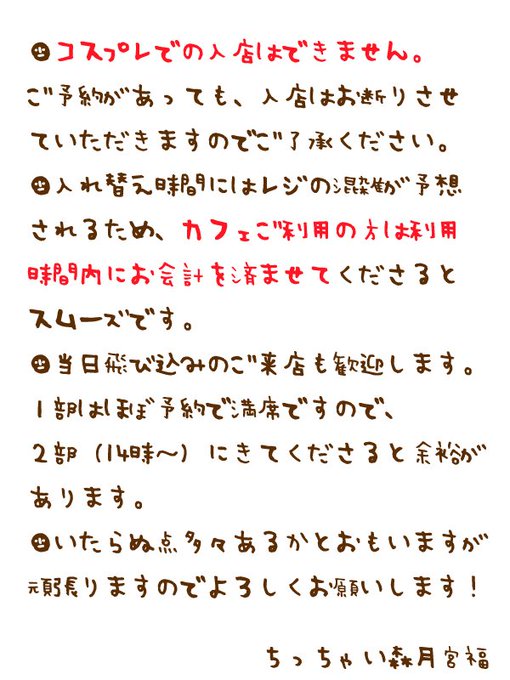 コスプレでの入店はできません。
ご予約があっても、入店はお断りさせ
ていただきますのでご了承ください。
入れ替え時間にはレジの混雑が予想
されるため、カフェご利用の方は利用
時間内にお会計を済ませてくださると
スムーズです。
当日飛び込みのご来店も歓迎します。
1部はほぼ予約で満席ですので、
2部（14時〜）にきてくださると余裕が
あります。
いたらぬ点多々あるかとおもいますが
頑張りますのでよろしくお願いします！
ちっちゃい森月宮福